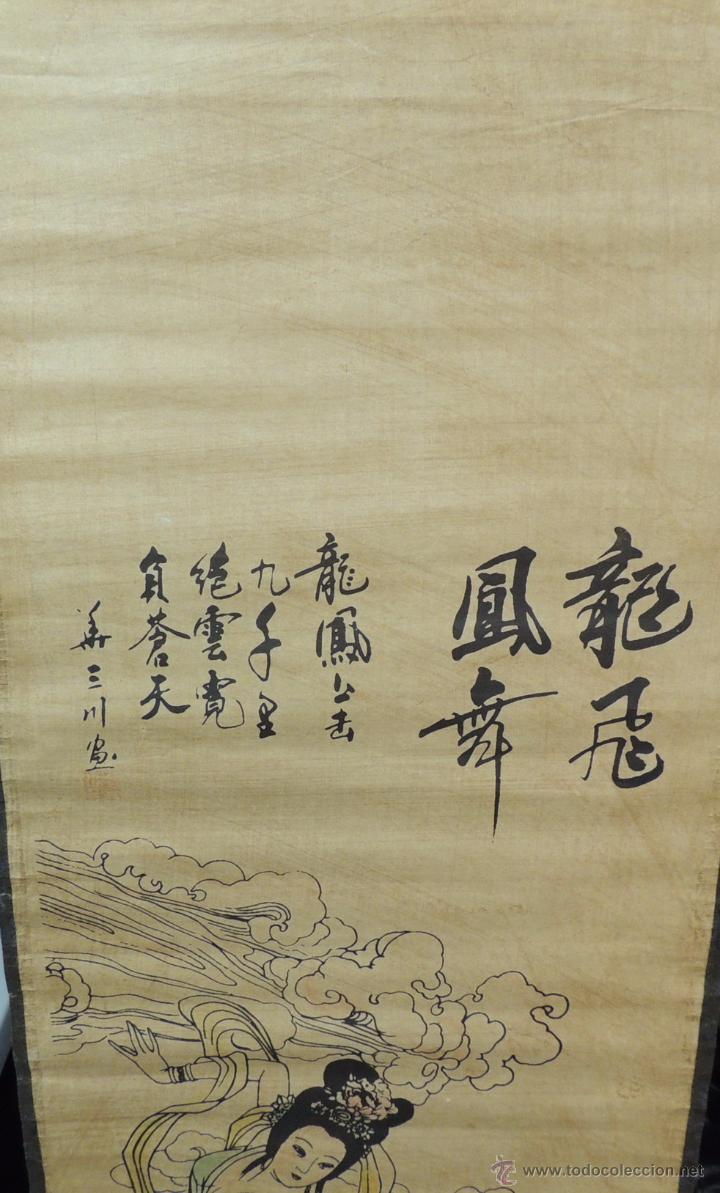 龍飛
鳳舞
龍鳳上击
九千里
絕雲霓
負蒼天
華三川畫
www.todocoleccion.net